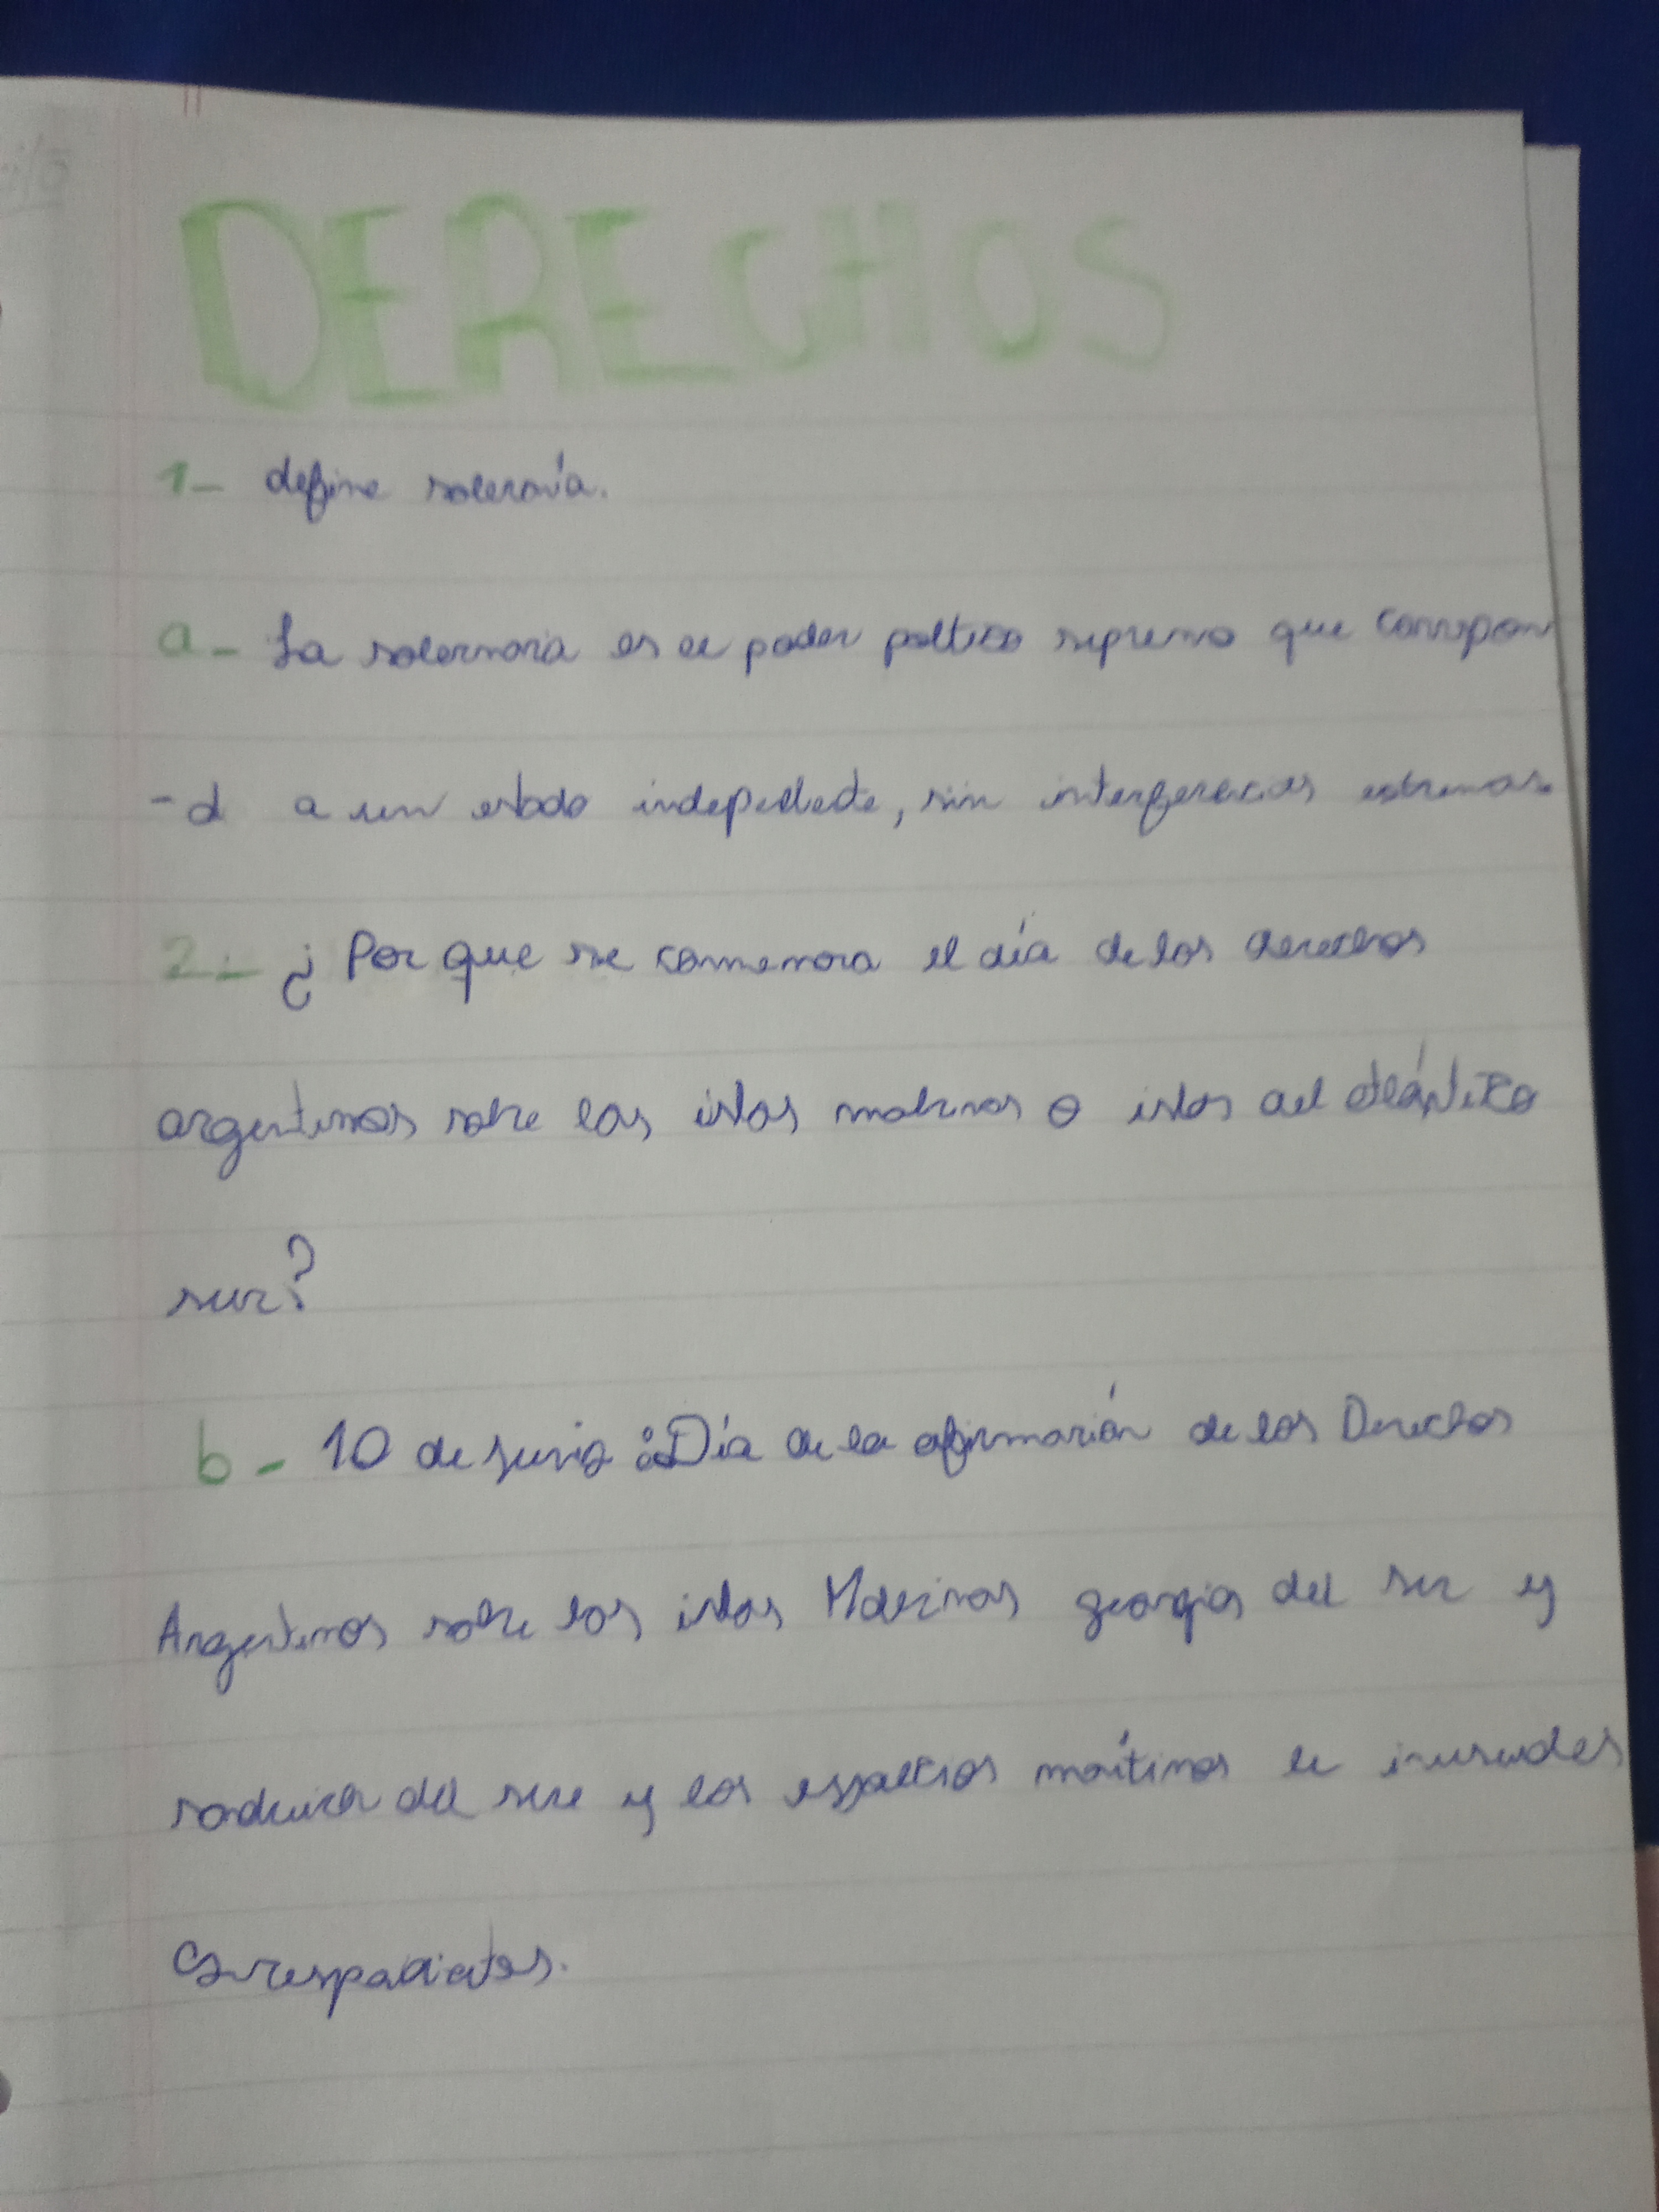 DERECHOS
1- define soleranía.
a- La solernoria es el poder poltico supremo que correspon
-d a un estado indepediete, sin interferecias extrenas.
2- ¿Por que se conmemora el día de los derechos
argentinos sobre las islas malvinas o islas del atlántico
sur?
b- 10 de junio: Día de la afirmarión de los Derechos
Argentinos sobre las islas Malvinas georgias del sur y
sanduich del sur y los espacios maítimos e